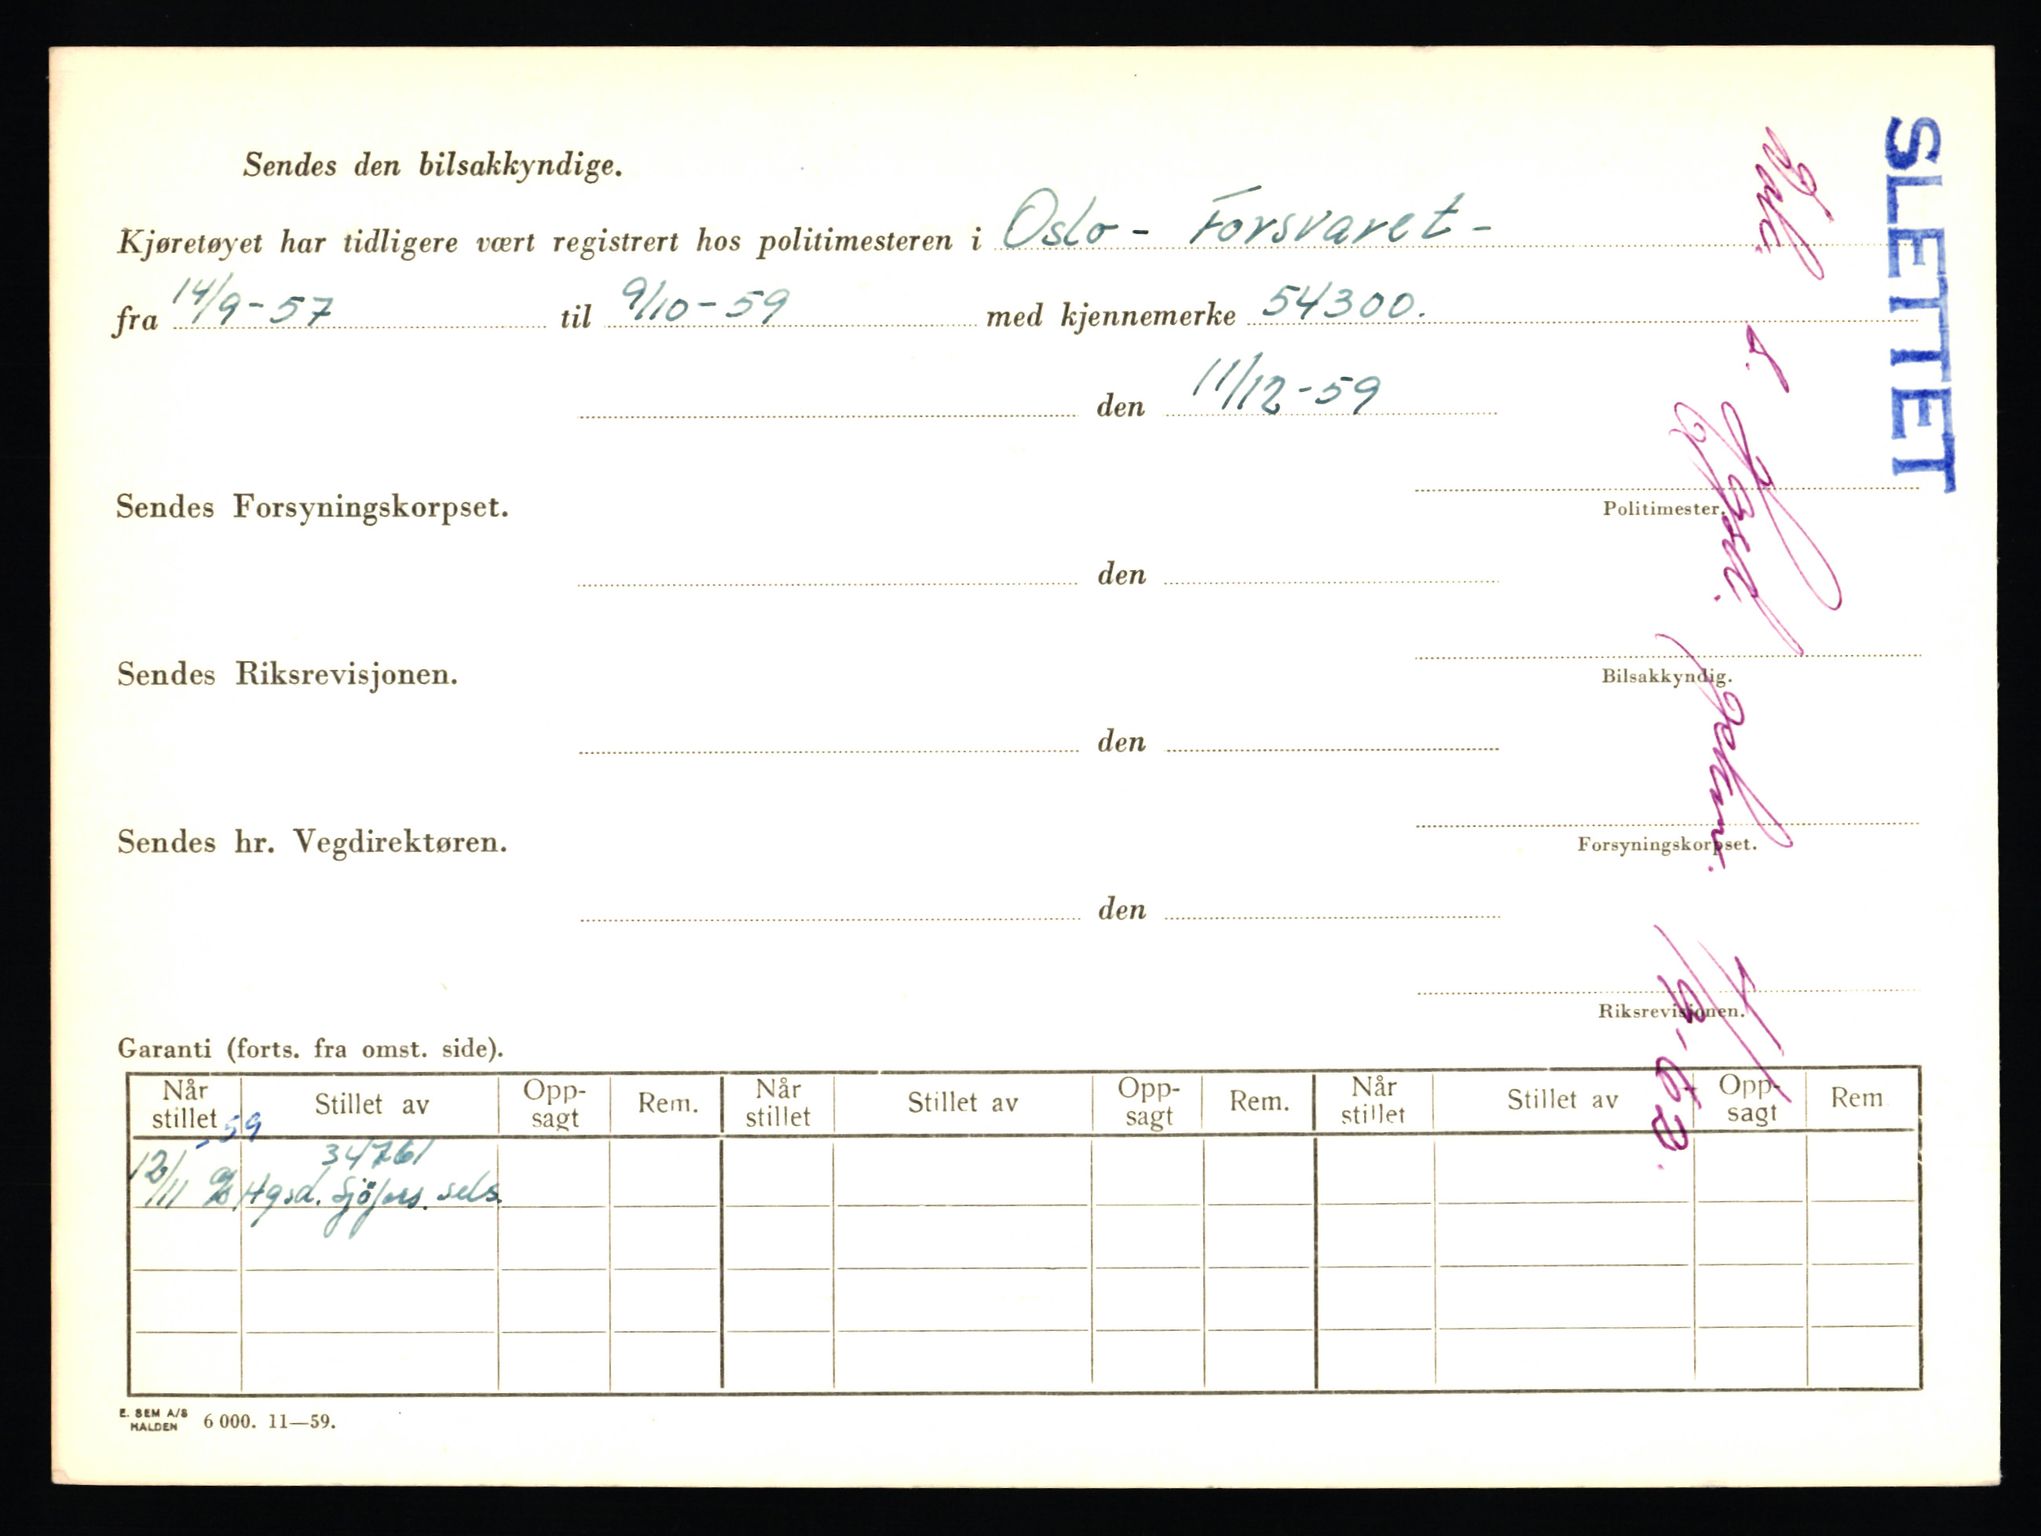 SLETTET
Sendes den bilsakkyndige.
Kjøretøyet har tidligere vært registrert hos politimesteren i Oslo - Forsvaret -
fra 14/9-57 til 9/10-59 med kjennemerke 54300.
den 11/12-59
Politimester.
Sendes Forsyningskorpset.
den
Bilsakkyndig.
Sendes Riksrevisjonen.
den
Forsyningskorpset.
Sendes hr. Vegdirektøren.
den
Riksrevisjonen.
4/9-62.
Garanti (forts. fra omst. side).
Når stillet Stillet av Opp-sagt Rem. Når stillet Stillet av Opp-sagt Rem. Når stillet Stillet av Opp-sagt Rem
-59 34761
Hgsd. Sjöfors. sels.
E. SEM A/S
HALDEN 6 000. 11—59.